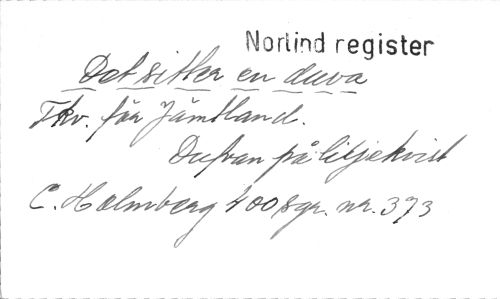 Norlind register
Det sitter en duva
Tkv. från Jämtland.
Dufvan på liljekvist
C. Holmberg 400 sgr. nr. 373